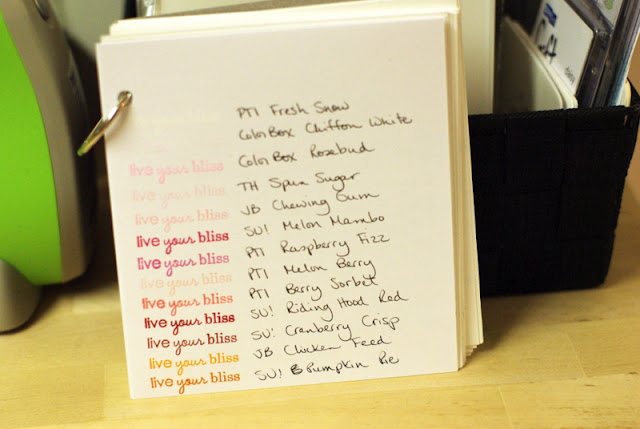 PTI Fresh Snow
ColorBox Chiffon White
live your bliss ColorBox Rosebud
live your bliss TH Spun Sugar
live your bliss JB Chewing Gum
live your bliss SU! Melon Mambo
live your bliss PTI Raspberry Fizz
live your bliss PTI Melon Berry
live your bliss PTI Berry Sorbet
live your bliss SU! Riding Hood Red
live your bliss SU! Cranberry Crisp
live your bliss JB Chicken Feed
live your bliss SU! Pumpkin Pie